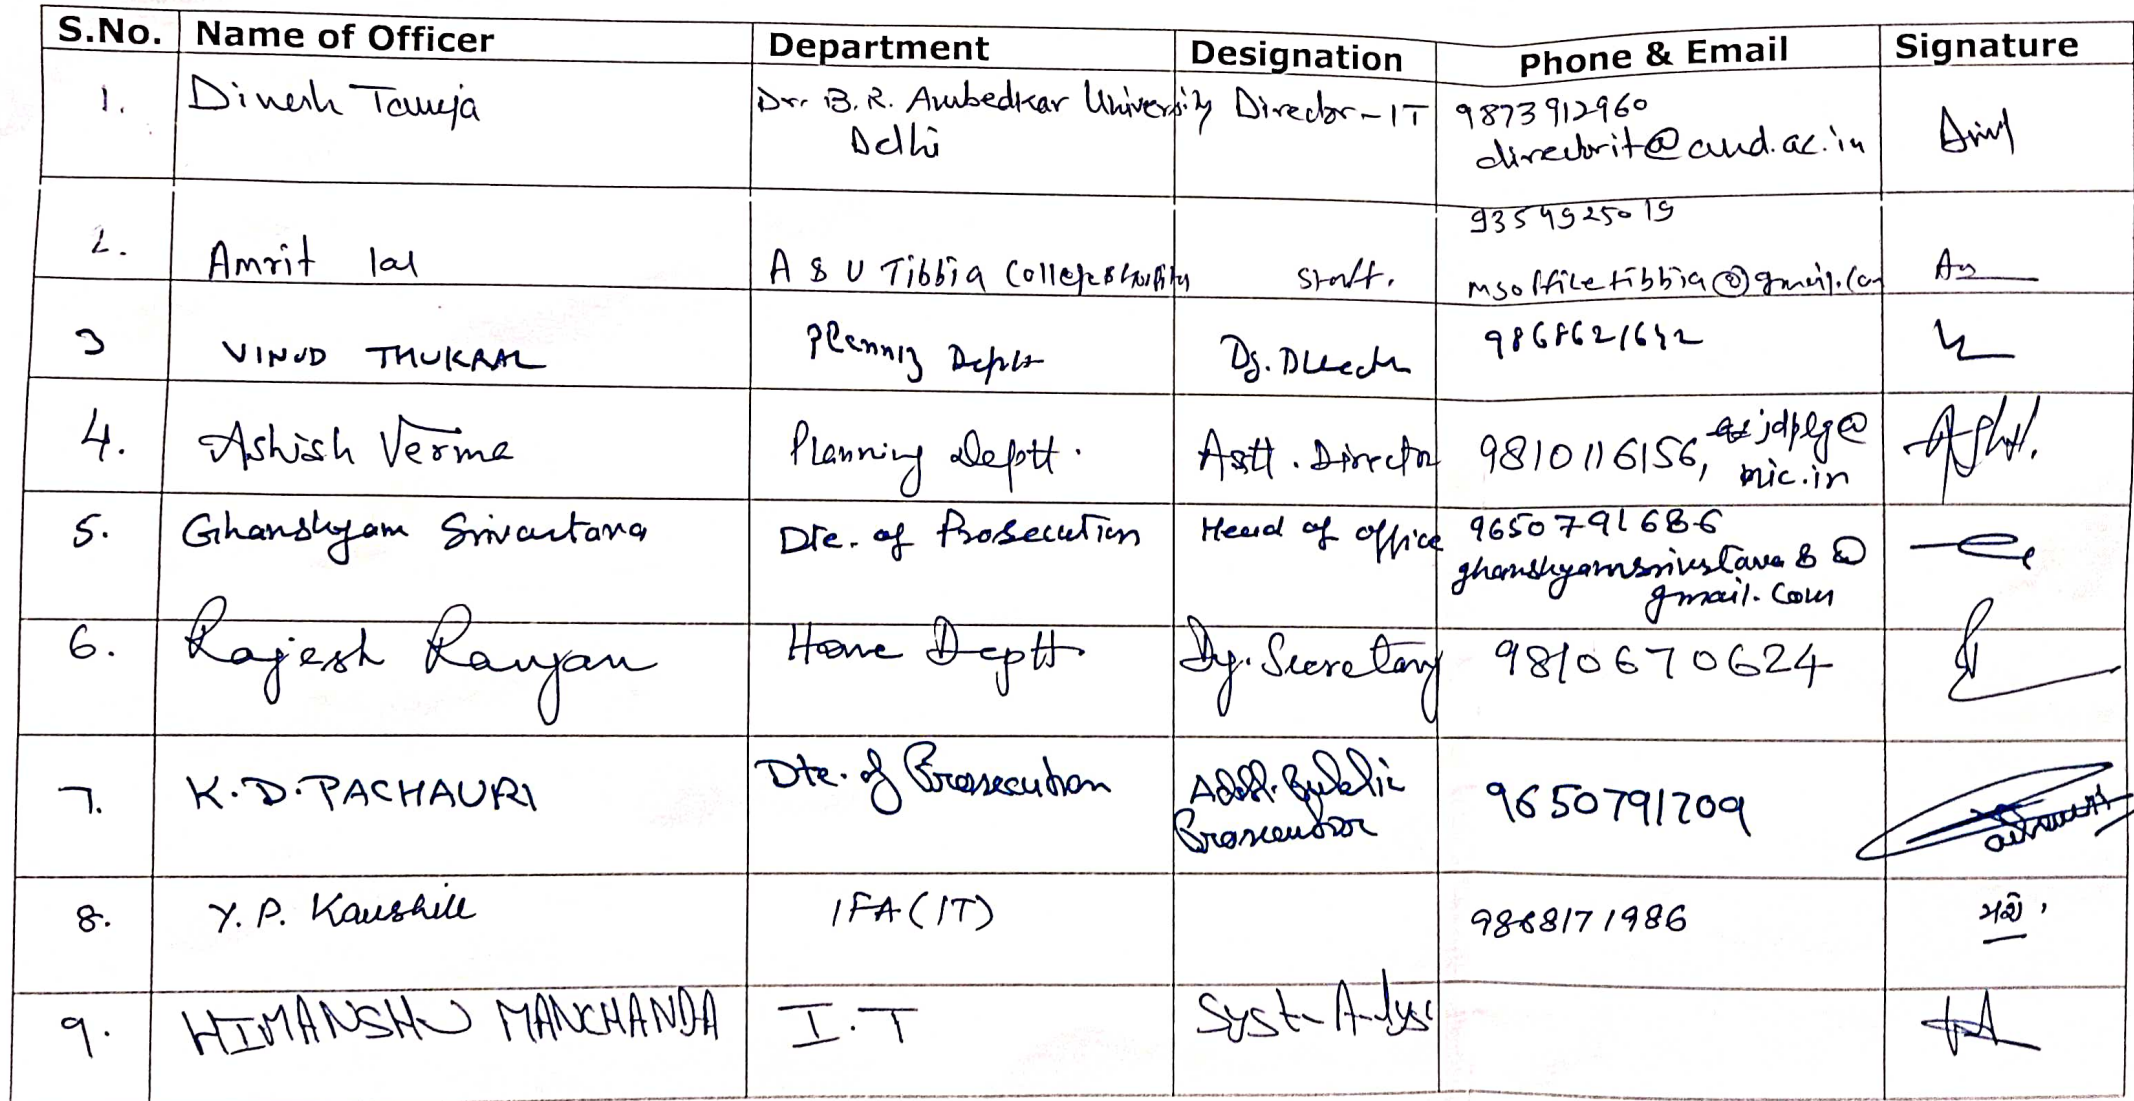 S.No. Name of Officer Department Designation Phone & Email Signature
1. Dinesh Taneja Dr. B. R. Ambedkar University Director - IT 9873912960
Delhi directorit@aud.ac.in
9354925019
2. Amrit lal A & U Tibbia College & Hospital Staff. msofficetibbia@gmail.com
3 VINOD THUKRAL Planning Deptt Dy. Director
4. Ashish Verma Planning Deptt. Astt. Director 9810116156, jdplg@
nic.in
5. Ghanshyam Srivastava Dte. of Prosecution Head of office 9650791686
ghanshyamsrivastava8@
gmail.com
6. Rajesh Ranjan Home Deptt Dy. Secretary 9810670624
7. K.D. PACHAURI Dte. of Prosecution Addl. Public 9650791209
Prosecutor
8. Y. P. Kaushik IFA (IT) 9868171986
9. HIMANSHU MANCHANDA I.T